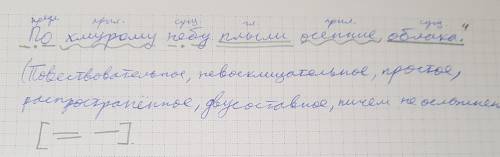 предл. прил. сущ. гл. прил. сущ. 4
По хмурому небу плыли осенние облака.
(Повествовательное, невосклицательное, простое,
распространённое, двусоставное, ничем не осложнен